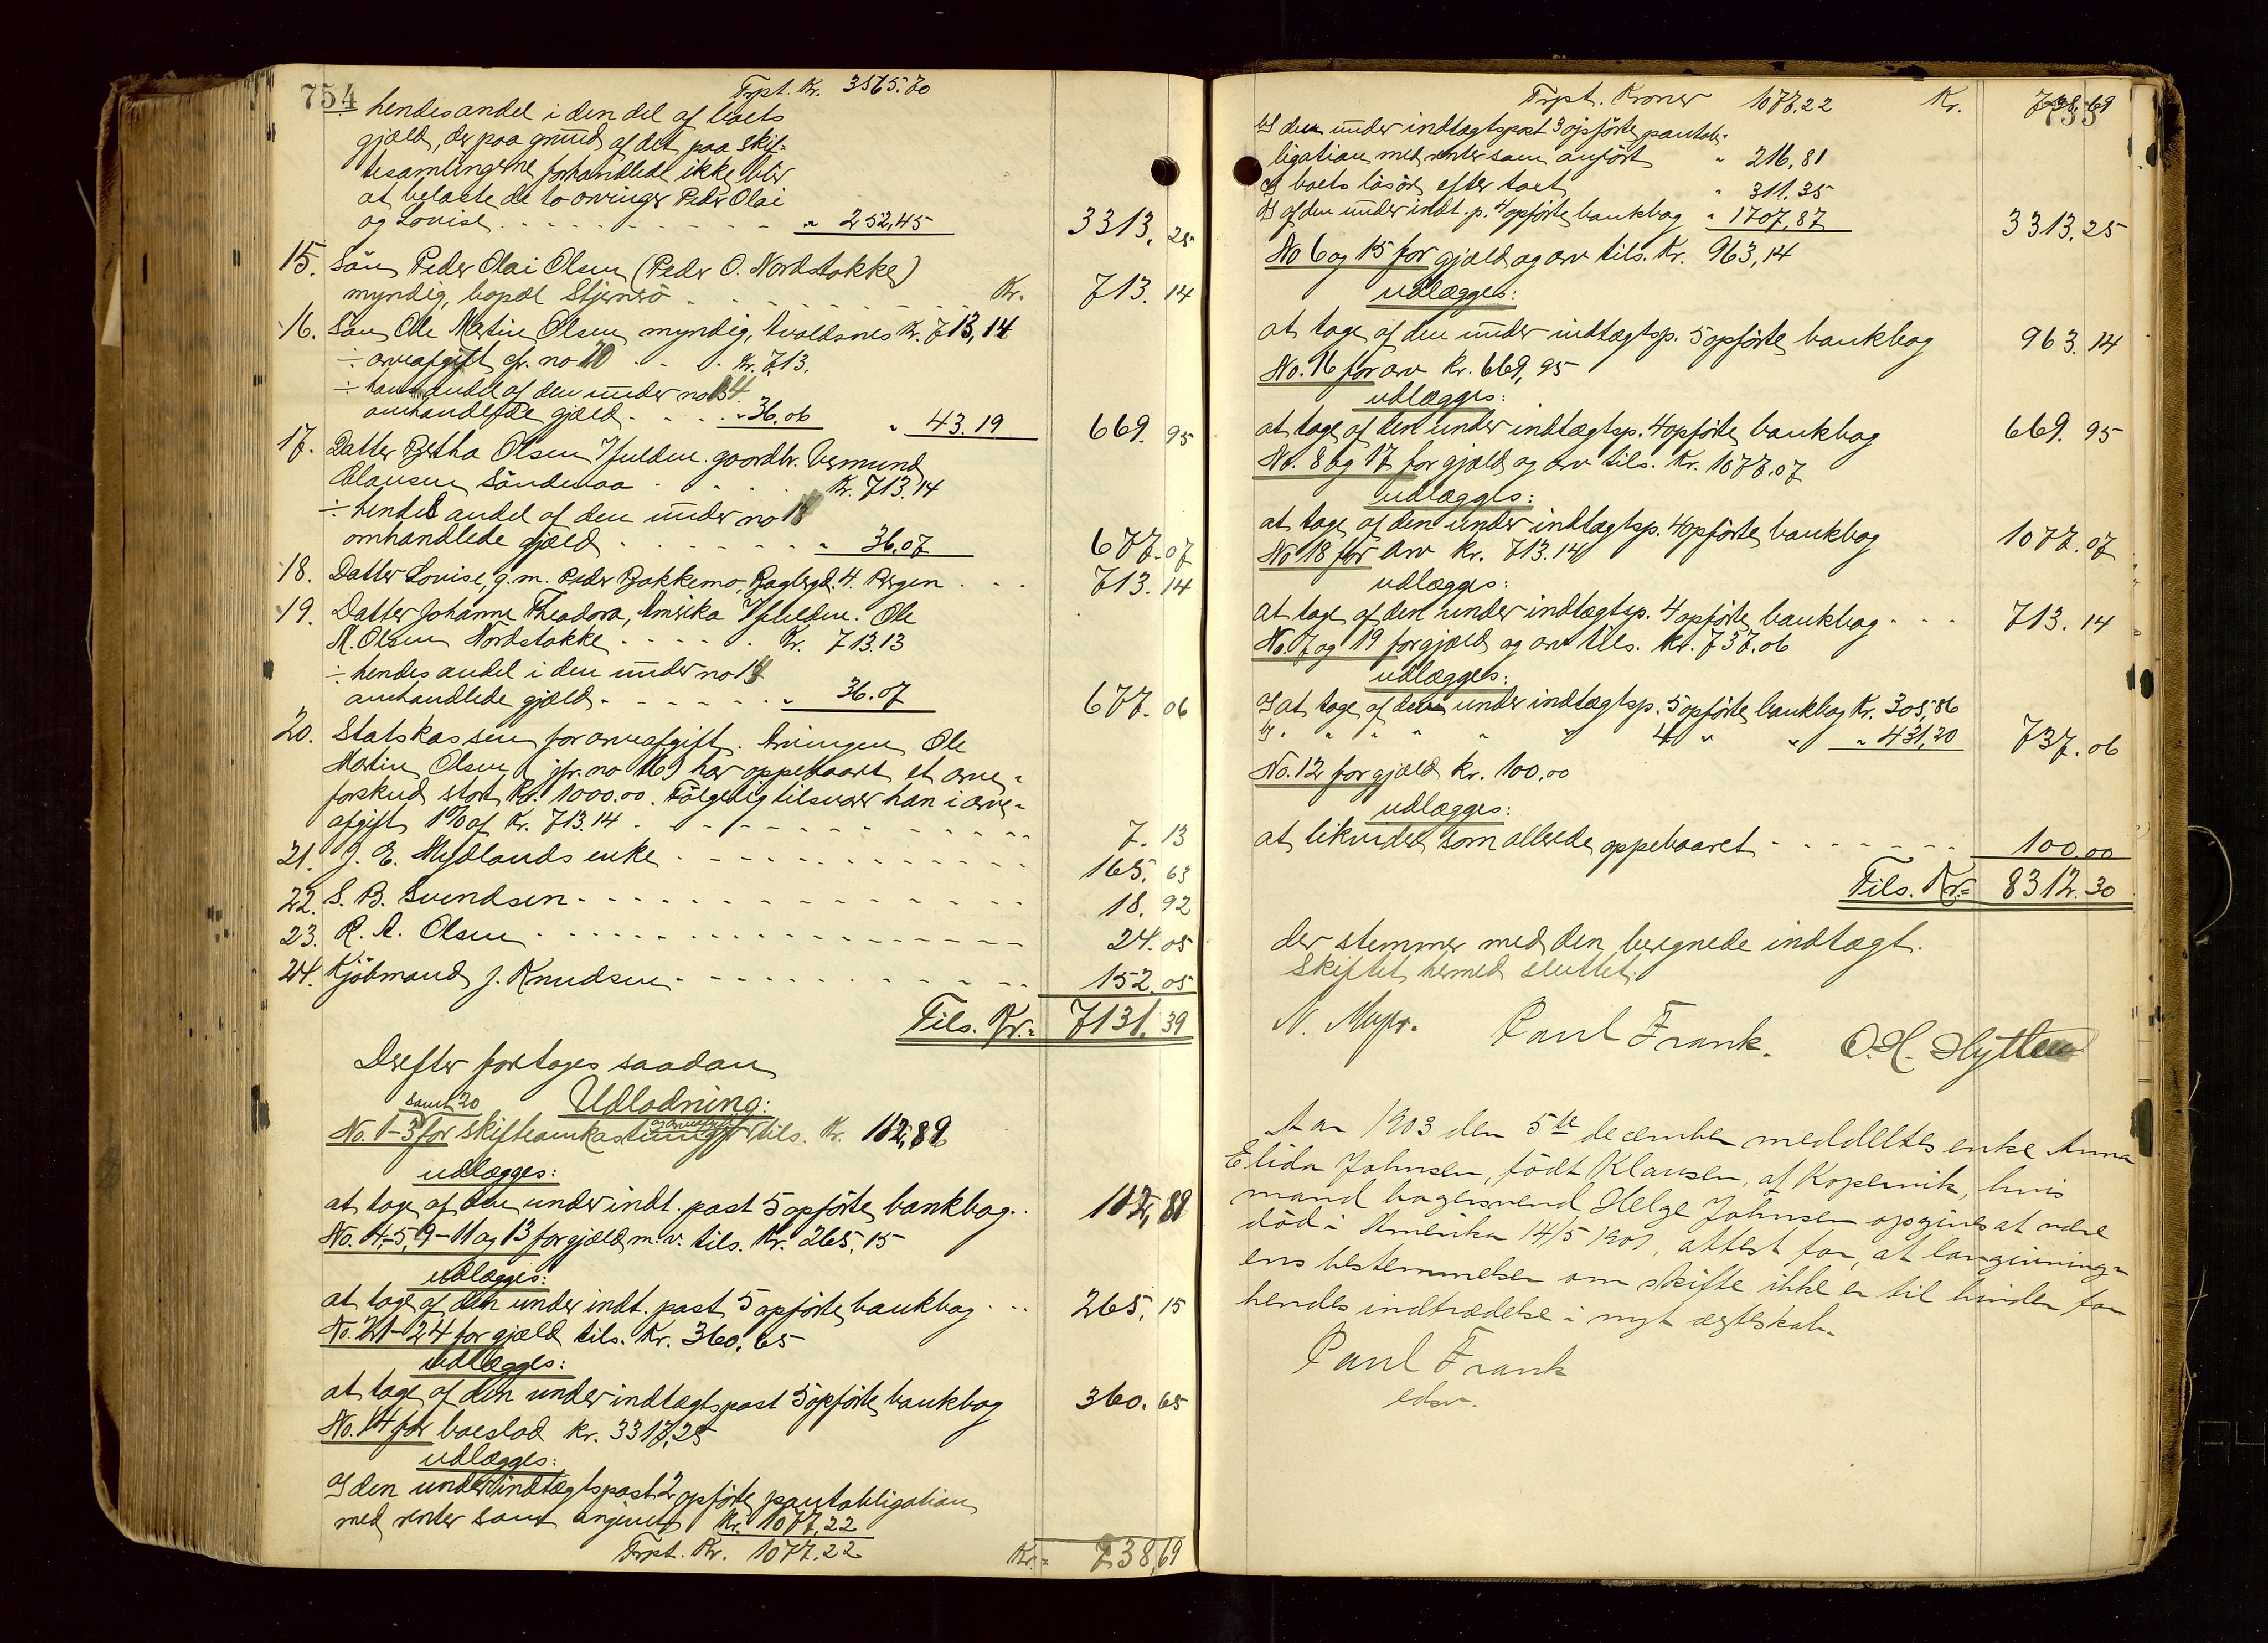 754
Trpt. Kr. 3565.70
hendes andel i den del af boets
gjæld, der paa grund af det paa skif-
tesamlingerne forhandlede ikke blir
at belaste de to arvinger Peder Olai
og Lovise . . . . . . . . . . " 252,45 3313.25
15. Søn Peder Olai Olsen (Peder O. Nordstokke)
myndig, bopæl Stjernø . . . . . . . . Kr. 713.14
16. Søn Ole Martin Olsen myndig, Avaldsnes Kr. 713,14
÷ arveafgift cfr. no 20 . . . Kr. 7.13.
÷ hans andel af den under no 14
omhandlede gjæld . . . . " 36.06 " 43.19 669.95
17. Datter Bertha Olsen v/fuldm. gaardbr. Vermund
Clausen Søndenaa . . . . Kr. 713.14
÷ hendes andel af den under no 14
omhandlede gjæld . . . . . . . " 36.07 677.07
18. Datter Lovise, g. m. Peder Bakkemo, 4. Bergen . . . 713.14
19. Datter Johanne Theodora, Amerika v/fuldm. Ole
M. Olsen Nordstokke . . . . . Kr. 713.13
÷ hendes andel i den under no 14
omhandlede gjæld - - - - - - " 36.07 677.06
20. Statskassen for arveafgift. Arvingen Ole
Martin Olsen (jfr. no 16) har oppebaaret et arve-
forskud stort Kr. 1000.00. Følgelig tilsvarer han i arve-
afgift 1% af Kr. 713.14 - - - - - - - - - - - 7.13
21. J. E. Mydlands enke - - - - - - - - - - - 165.63
22. S. B. Svendsen - - - - - - - - - - - - - 18.92
23. R. A. Olsen - - - - - - - - - - - - - - - 24.05
24. Kjøbmand J. Knudsen - - - - - - - - - - - 152.05
Tils. Kr. = 7131.39
Derefter foretages saadan
Udlodning:
samt 20
No. 1-3 for skifteomkostninger og arveafgift tils. Kr. 112,89
udlægges:
at tage af den under indt. post 5 opførte bankbog . . 112,89
No. 4-5, 9-11 og 13 for gjæld m. v. tils. Kr. 265,15
udlægges:
at tage af den under indt. post 5 opførte bankbog . . . 265,15
No. 21-24 for gjæld tils. Kr. 360.65
udlægges:
at tage af den under indtægtspost 5 opførte bankbog 360.65
No. 14 for boeslod kr. 3313,25
udlægges:
a) den under indtægtspost 2 opførte pantobligation
med renter som angivet Kr. 1077,22
Trpt. Kr. 1077.22 Kr. = 738,69
755
Trpt. Kroner 1077.22 Kr. 738,69
b) den under indtægtspost 3 opførte pantob-
ligation med renter som anført " 216,81
c) boets løsøre efter taxt " 311.35
d) af den under indt. p. 4 opførte bankbog " 1707,87 3313.25
No 6 og 15 for gjæld og arv tils. Kr. 963,14
udlægges:
at tage af den under indtægtsp. 5 opførte bankbog 963.14
No. 16 for arv Kr. 669,95
udlægges:
at tage af den under indtægtsp. 4 opførte bankbog 669.95
No. 8 og 17 for gjæld og arv tils. Kr. 1077.07
udlægges:
at tage af den under indtægtsp. 4 opførte bankbog 1077.07
No 18 for arv Kr. 713.14
udlægges:
at tage af den under indtægtsp. 4 opførte bankbog . . . 713.14
No. 7 og 19 for gjæld og arv tils. Kr. 737.06
udlægges:
a) at tage af den under indtægtsp. 5 opførte bankbog Kr. 305,86
b) " " " " " " 4 " " " 431,20 737.06
No. 12 for gjæld Kr. 100,00
udlægges:
at likvidere som allerede oppebaaret - - - - - - - 100,00
Tils. Kr. = 8312.30
der stemmer med den beregnede indtægt.
Skiftet hermed sluttet.
Paul Frank. O. H. Hytten
Aar 1903 den 5te december meddeltes enke Anna
Elida Johnsen, født Klausen, af Kopervik, hvis
mand bagersvend Helge Johnsen opgives at være
død i Amerika 14/5 1901, attest for, at lovgivning-
ens bestemmelser om skifte ikke er til hinder for
hendes indtrædelse i nyt ægteskab.
Paul Frank
edsv.